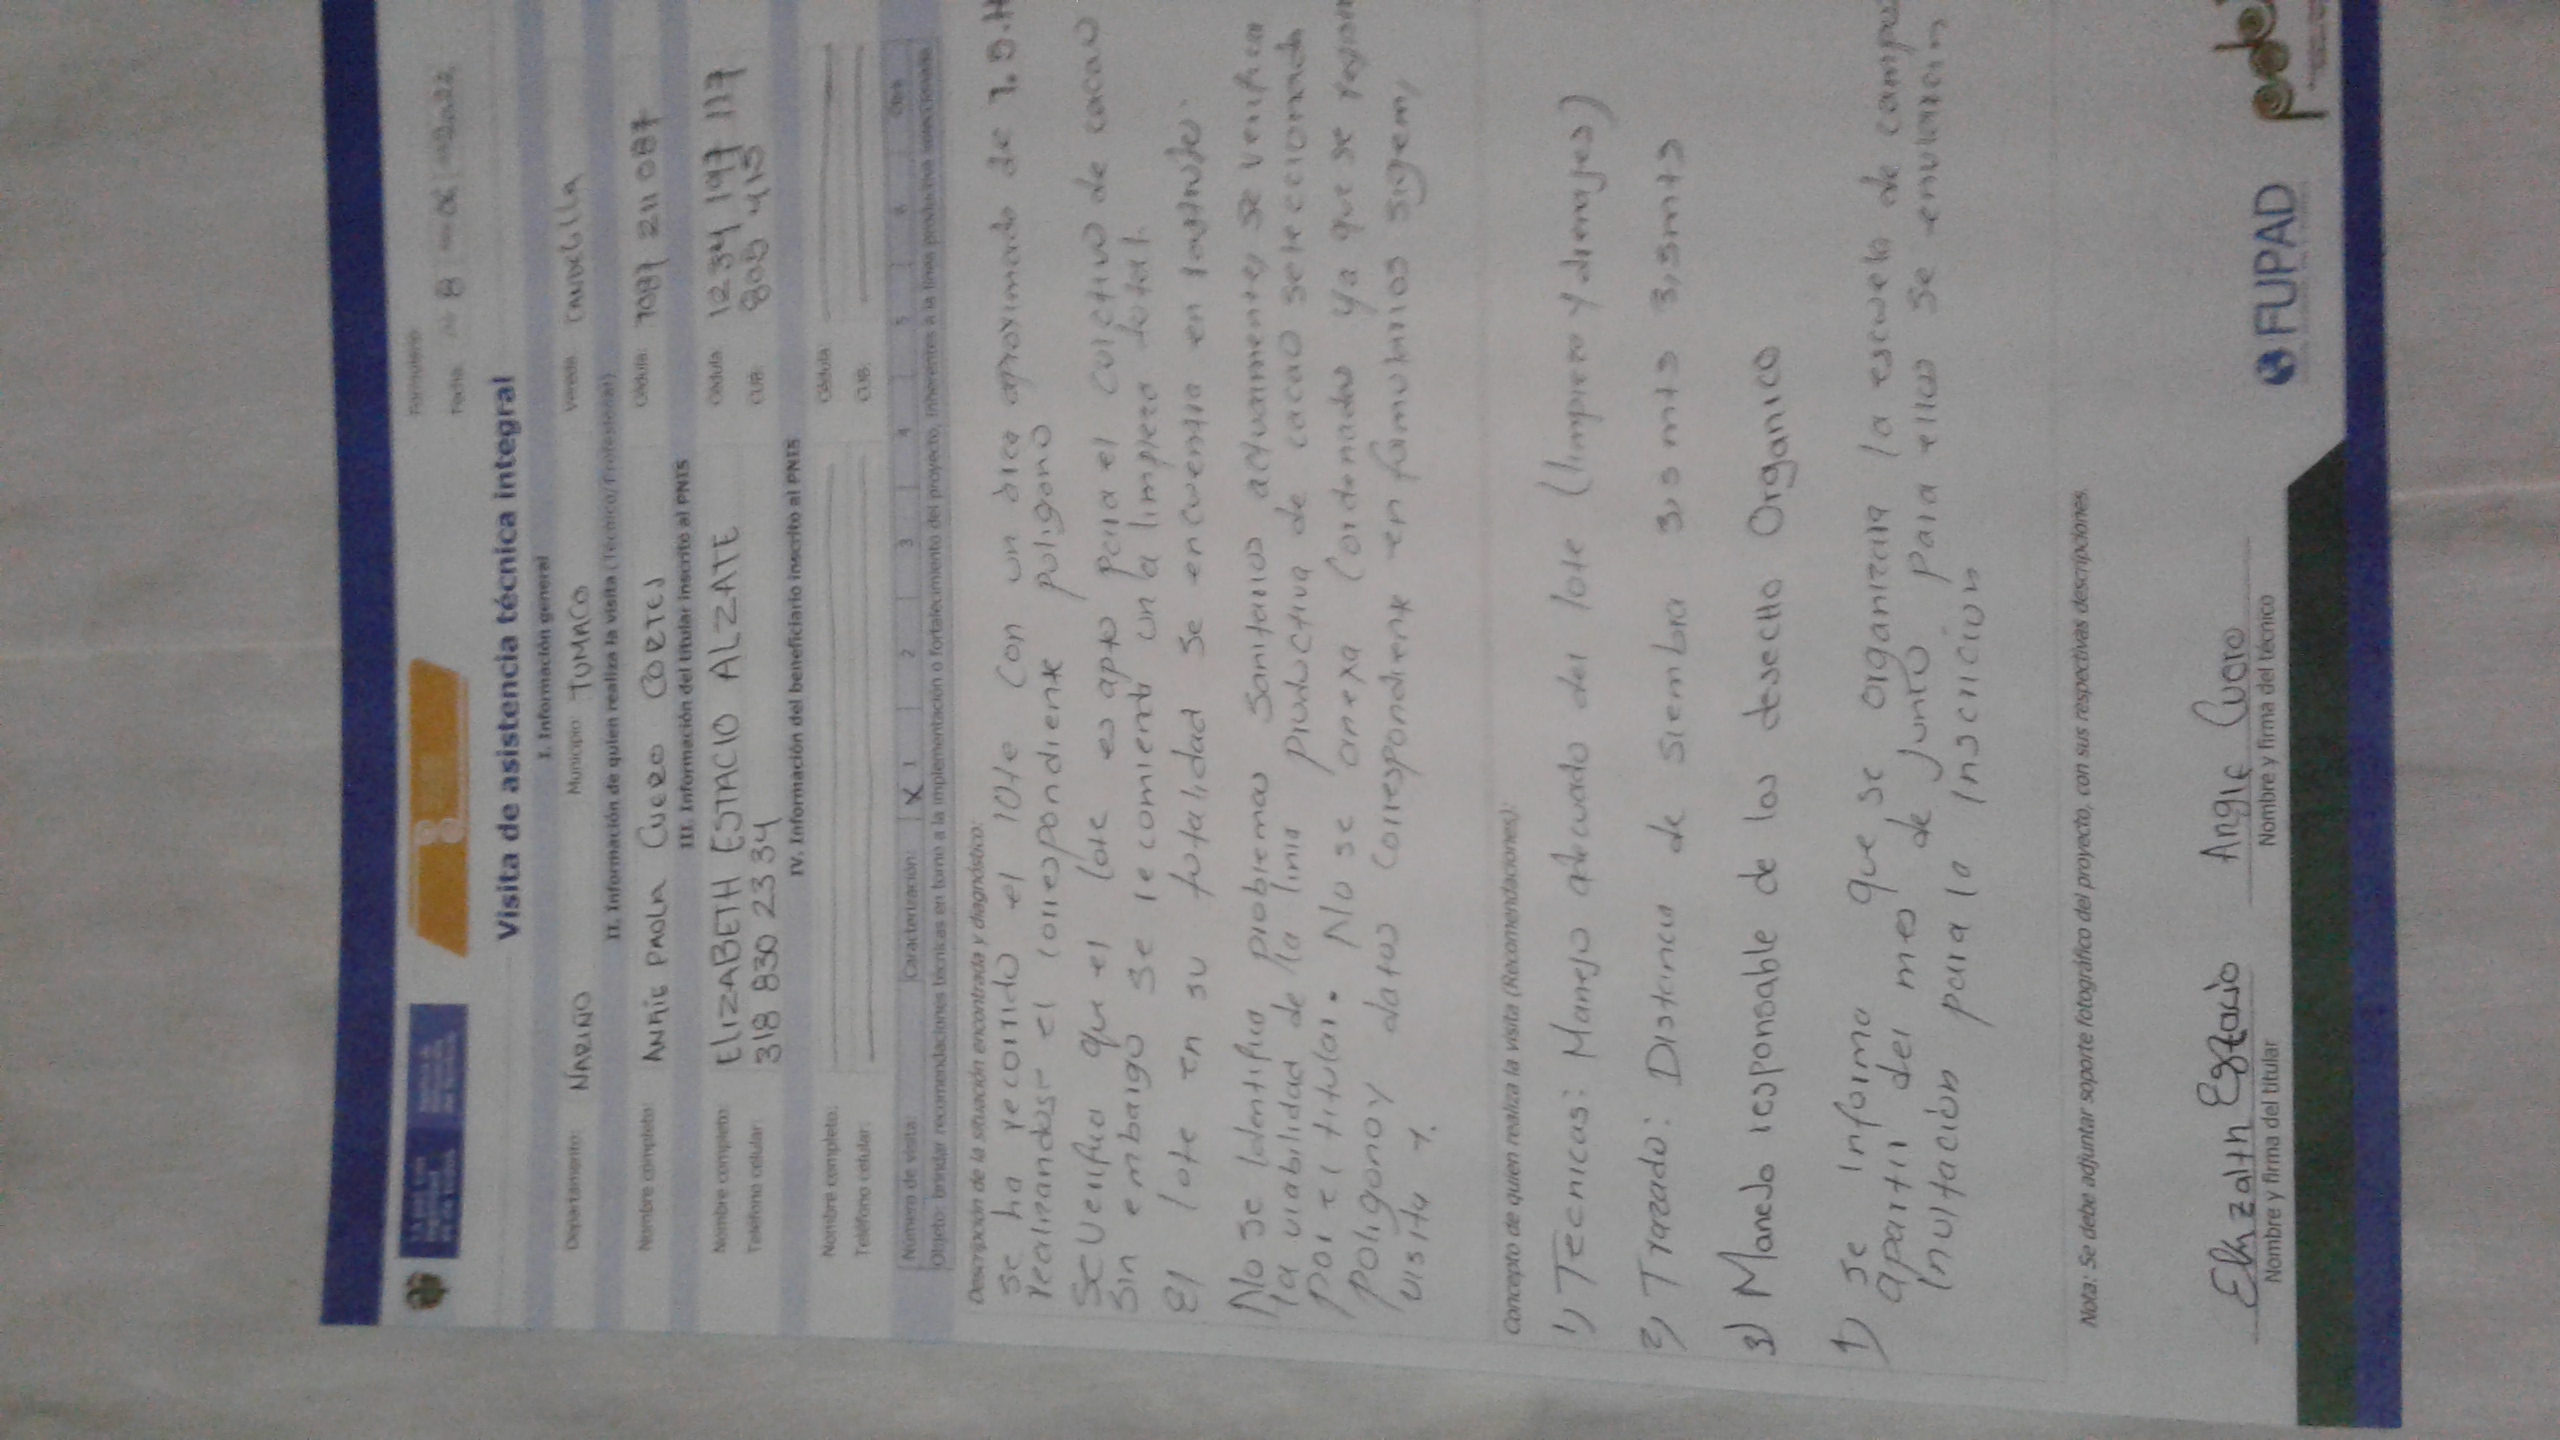 Formulario
Fecha 8 06 2022
Visita de asistencia técnica integral
I. Información general
Departamento: NARIÑO Municipio: TUMACO Vereda: CANDELILLA
II. Información de quien realiza la visita (Técnico/Profesional)
Nombre completo: ANGIE PAOLA CUERO CORTES Cédula: 1087 211 087
III. Información del titular inscrito al PNIS
Nombre completo: ELIZABETH ESTACIO ALZATE Cédula: 1234 197 117
Teléfono celular: 318 830 23 34 CUB: 805 415
IV. Información del beneficiario inscrito al PNIS
Nombre completo: Cédula:
Teléfono celular: CUB:
Número de visita: Caracterización: X 1 2 3 4 5 6 Otra
Objeto: brindar recomendaciones técnicas en torno a la implementación o fortalecimiento del proyecto, inherentes a la línea productiva seleccionada.
Descripción de la situación encontrada y diagnóstico:
Se ha recorrido el lote con un area aproximado de 1.0.H
realizandose el correspondiente poligono
Se Verifica que el lote es apto para el cultivo de cacao
Sin embargo se recomienda una limpieza total.
El lote en su totalidad se encuentra en rastrojo.
No se identifica problemas Sanitarios actualmente, se verifica
la viabilidad de la linia productiva de cacao seleccionada
por el titular. No se anexa Cordenadas ya que se
poligono y datos correspondiente en formularios
visita 1.
Concepto de quien realiza la visita (Recomendaciones):
1) Tecnicas: Manejo adecuado del lote (limpieza y drenajes)
2) Trazado: Distancia de Siembra 3,5 mts 3,5 mts
3) Manejo responsable de los desecho Organico
1) se informa que se organizara la escuela de campo
apartir del mes de junio para ellos se enviaran
invitación para la inscricion
Nota: Se debe adjuntar soporte fotográfico del proyecto, con sus respectivas descripciones.
Elizabeth Estacio Angie Cuero
Nombre y firma del titular Nombre y firma del técnico
FUPAD